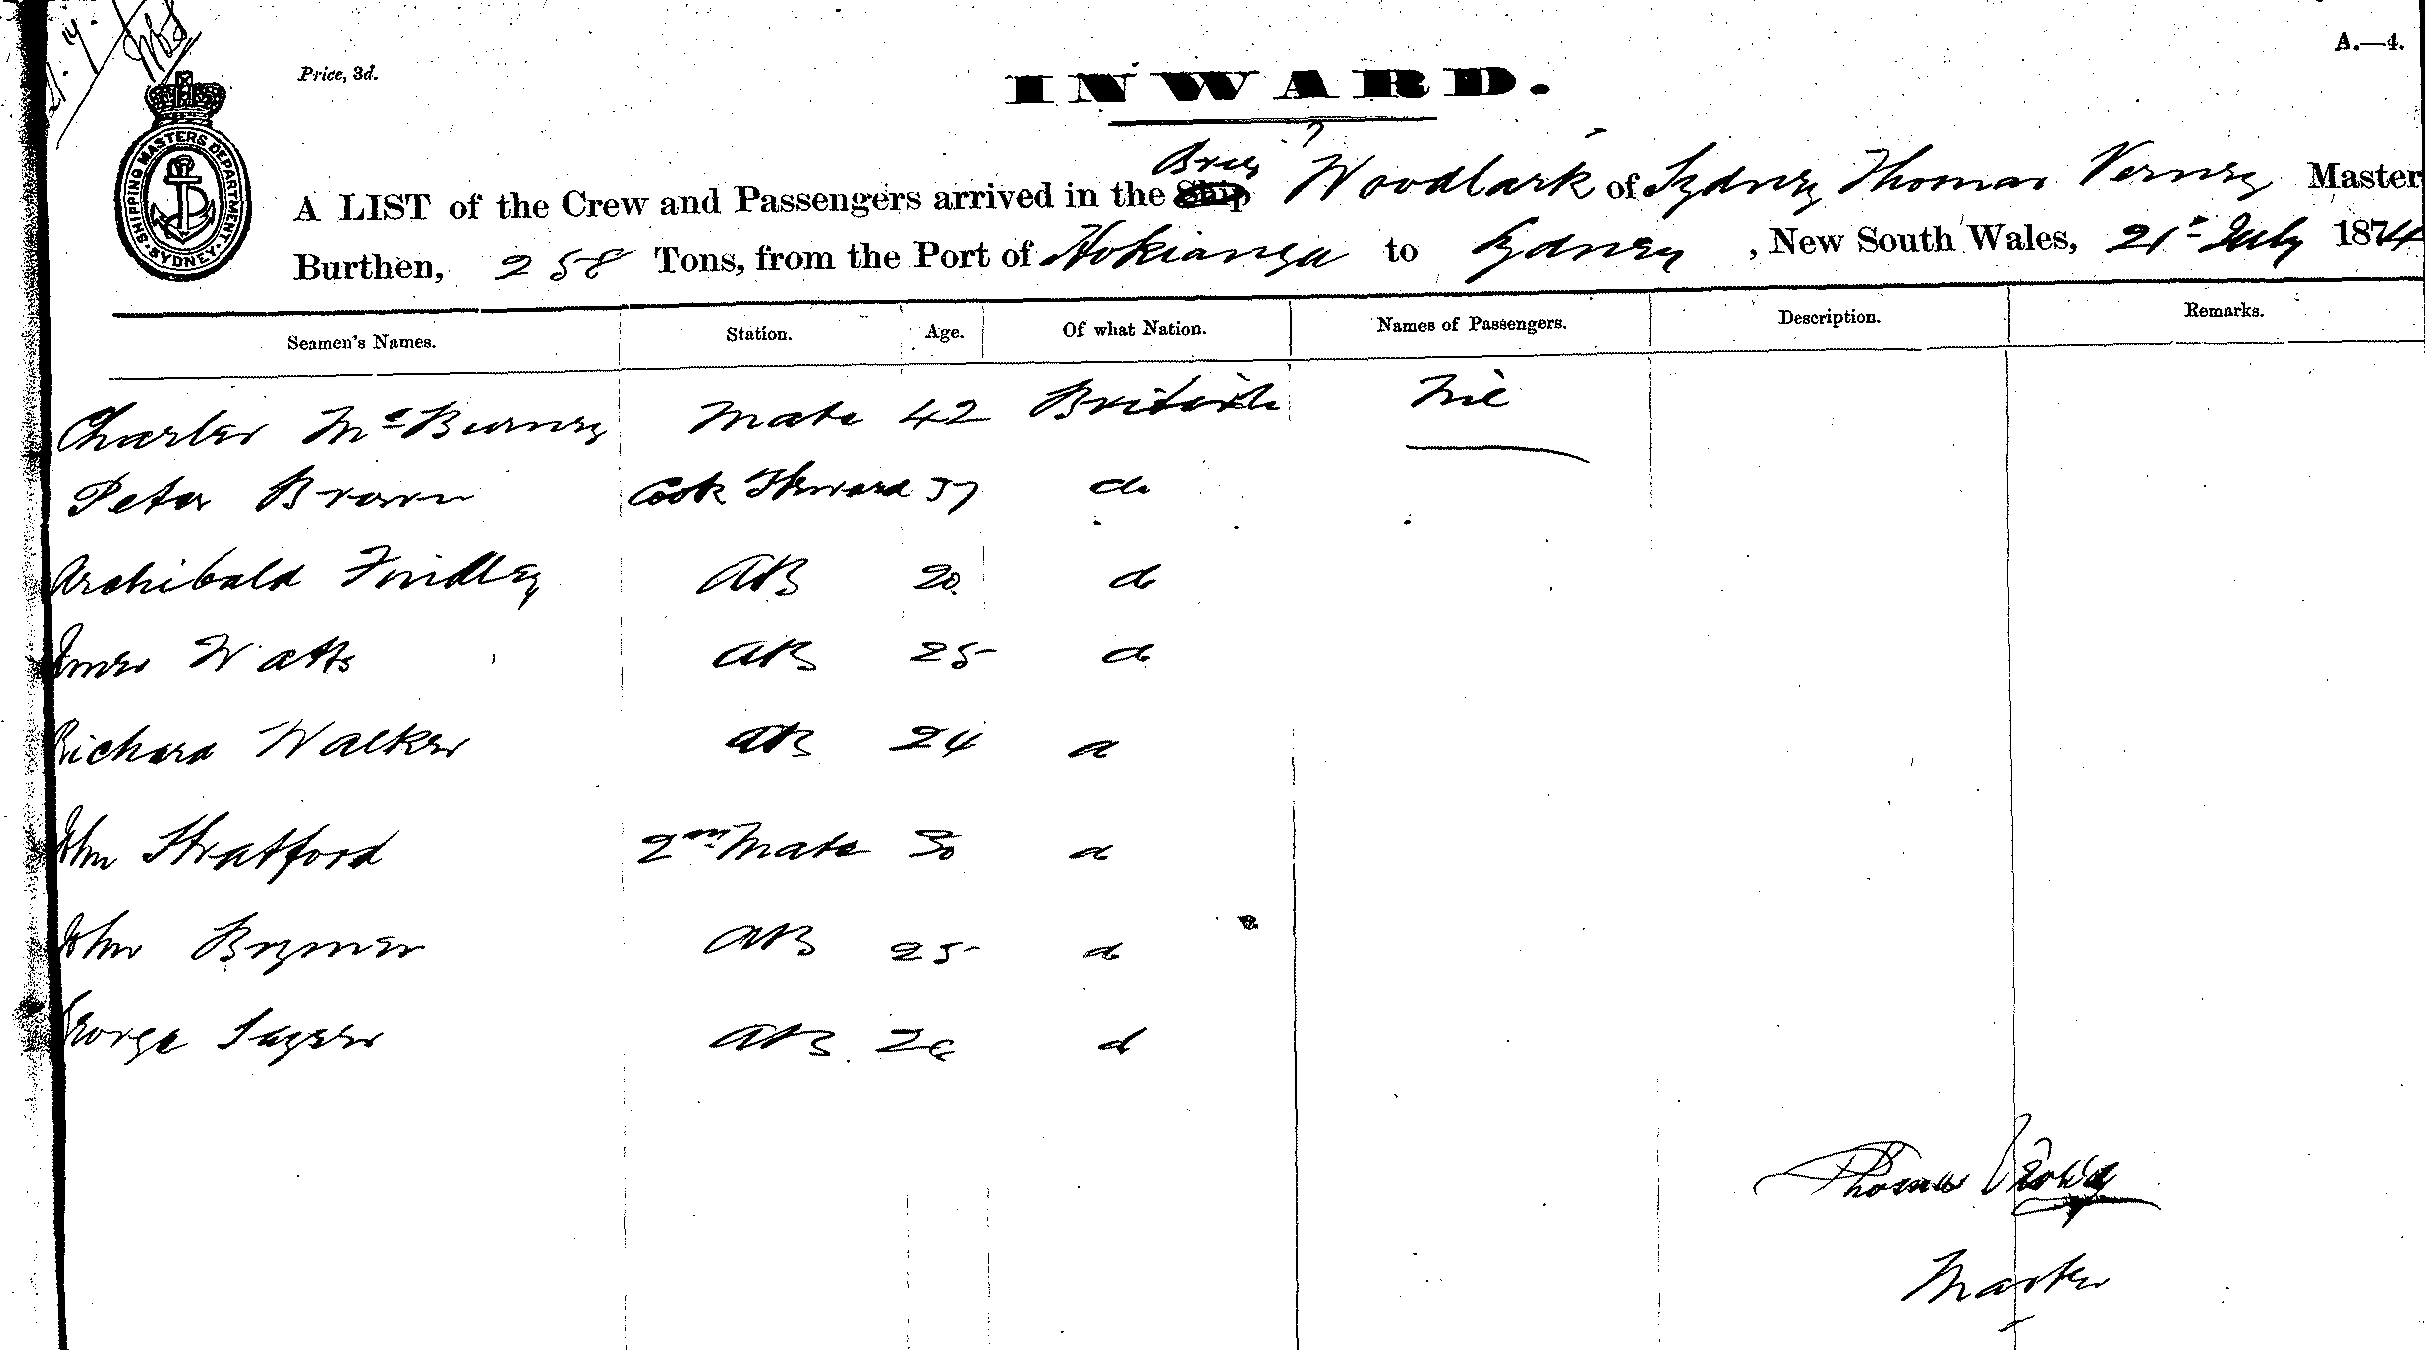 Price, 3d.
A.—4.
INWARD.
SHIPPING MASTERS DEPARTMENT SYDNEY
Brig
A LIST of the Crew and Passengers arrived in the Ship Woodlark of Sydney Thomas Verney Master
Burthen, 258 Tons, from the Port of Hokianga to Sydney, New South Wales, 21st July 1874
Seamen's Names. Station. Age. Of what Nation. Names of Passengers. Description. Remarks.
Charles McBurney Mate 42 British Nil
Peter Brown Cook Steward 37 do
Archibald Findley AB 20 do
James Watts AB 25 do
Richard Walker AB 24 do
John Stratford 2nd Mate 30 do
John Brymer AB 25 do
George AB do
Thomas
Master